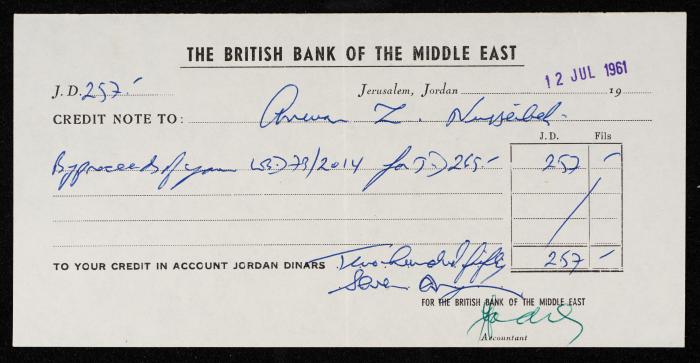 THE BRITISH BANK OF THE MIDDLE EAST
J. D. 257.- Jerusalem, Jordan 12 JUL 1961 19
CREDIT NOTE TO: Anwar Z. Nusseibeh.
J. D. Fils
By proceeds of your 73/2014 for J.D 265.- 257 -
TO YOUR CREDIT IN ACCOUNT JORDAN DINARS Two hundred fifty 257 -
Seven Only
FOR THE BRITISH BANK OF THE MIDDLE EAST
Accountant